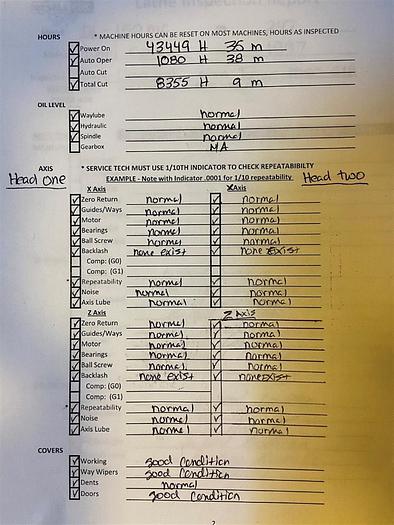 HOURS * MACHINE HOURS CAN BE RESET ON MOST MACHINES, HOURS AS INSPECTED
Power On 43449 H 35 m
Auto Oper 1080 H 38 m
Auto Cut
Total Cut 8355 H 9 m
OIL LEVEL
Waylube normal
Hydraulic normal
Spindle normal
Gearbox NA
AXIS * SERVICE TECH MUST USE 1/10TH INDICATOR TO CHECK REPEATABIBILTY
Head One EXAMPLE - Note with Indicator .0001 for 1/10 repeatability Head two
X Axis X Axis
Zero Return normal normal
Guides/Ways normal normal
Motor normal normal
Bearings normal normal
Ball Screw normal normal
Backlash none exist none exist
Comp: (G0)
Comp: (G1)
* Repeatability normal normal
Noise normal normal
Axis Lube normal normal
Z Axis Z Axis
Zero Return normal normal
Guides/Ways normal normal
Motor normal normal
Bearings normal normal
Ball Screw normal normal
Backlash none exist none exist
Comp: (G0)
Comp: (G1)
* Repeatability normal normal
Noise normal normal
Axis Lube normal normal
COVERS
Working good condition
Way Wipers good condition
Dents normal
Doors good condition